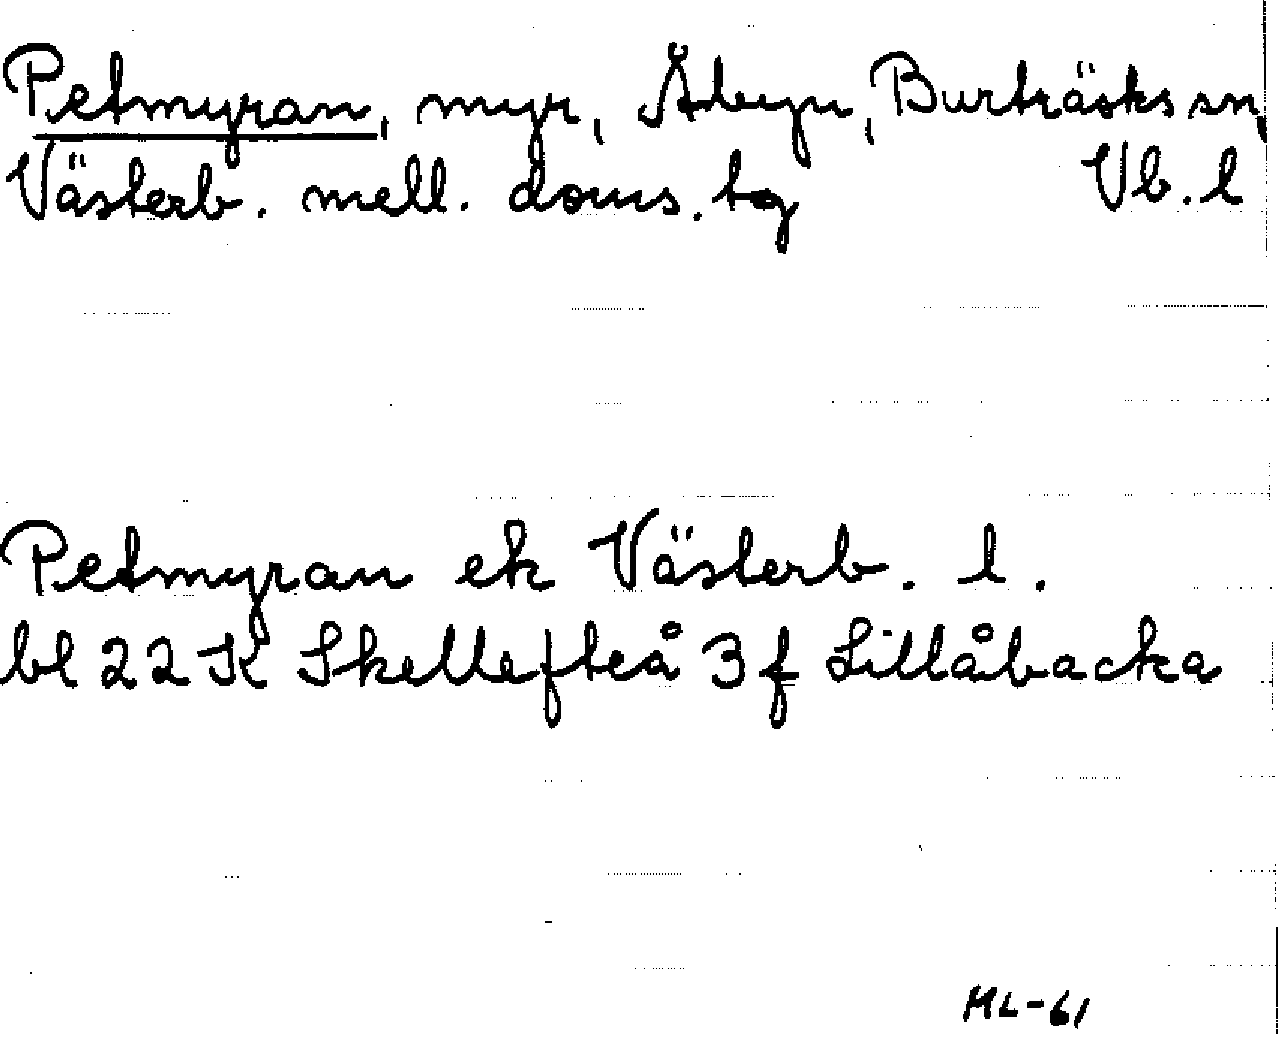 Petmyran, myr, Åbyn, Burträsks sn,
Västerb. mell. doms. tg Vb. l
Petmyran ek Västerb. l.
bl 22 K Skellefteå 3 f Lillåbacka
ML-61